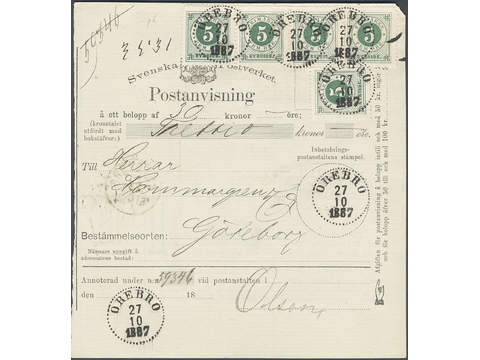 5 5 5 5
ÖREBRO 27 10 1887
ÖREBRO 27 10 1887
ÖREBRO 27 10 1887
ÖREBRO 27 10 1887
5
Svenska Postverket.
Postanvisning
å ett belopp af 30 kronor öre;
(kronetalet
utfördt med
bokstäfver:)
Trettio kronor öre.
Till Herrar
Inbetalnings-
postanstaltens stämpel.
ÖREBRO 27 10 1887
Göteborg
Bestämmelseorten:
Närmare uppgift å
adressatens bostad:
Annoterad under n:r 39346 vid postanstalten i
den 18
Olson
ÖREBRO 27 10 1887
Afgiften för postanvisning å belopp intill och med 50 kr. utgör
för belopp öfver 50 till och med 100 kr.